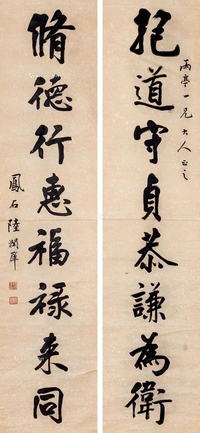 雨亭一兄大人正之
抱道守貞恭謙為衛
脩德行惠福禄来同
鳳石陸潤庠